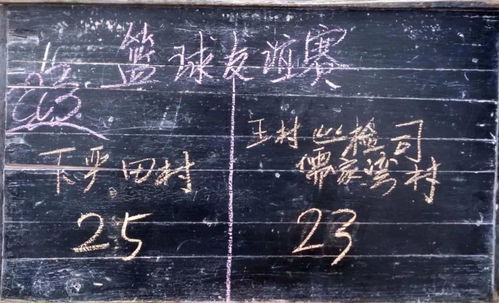 篮球友谊赛
下严田村
王村 巡检司
儒家湾村
25
23